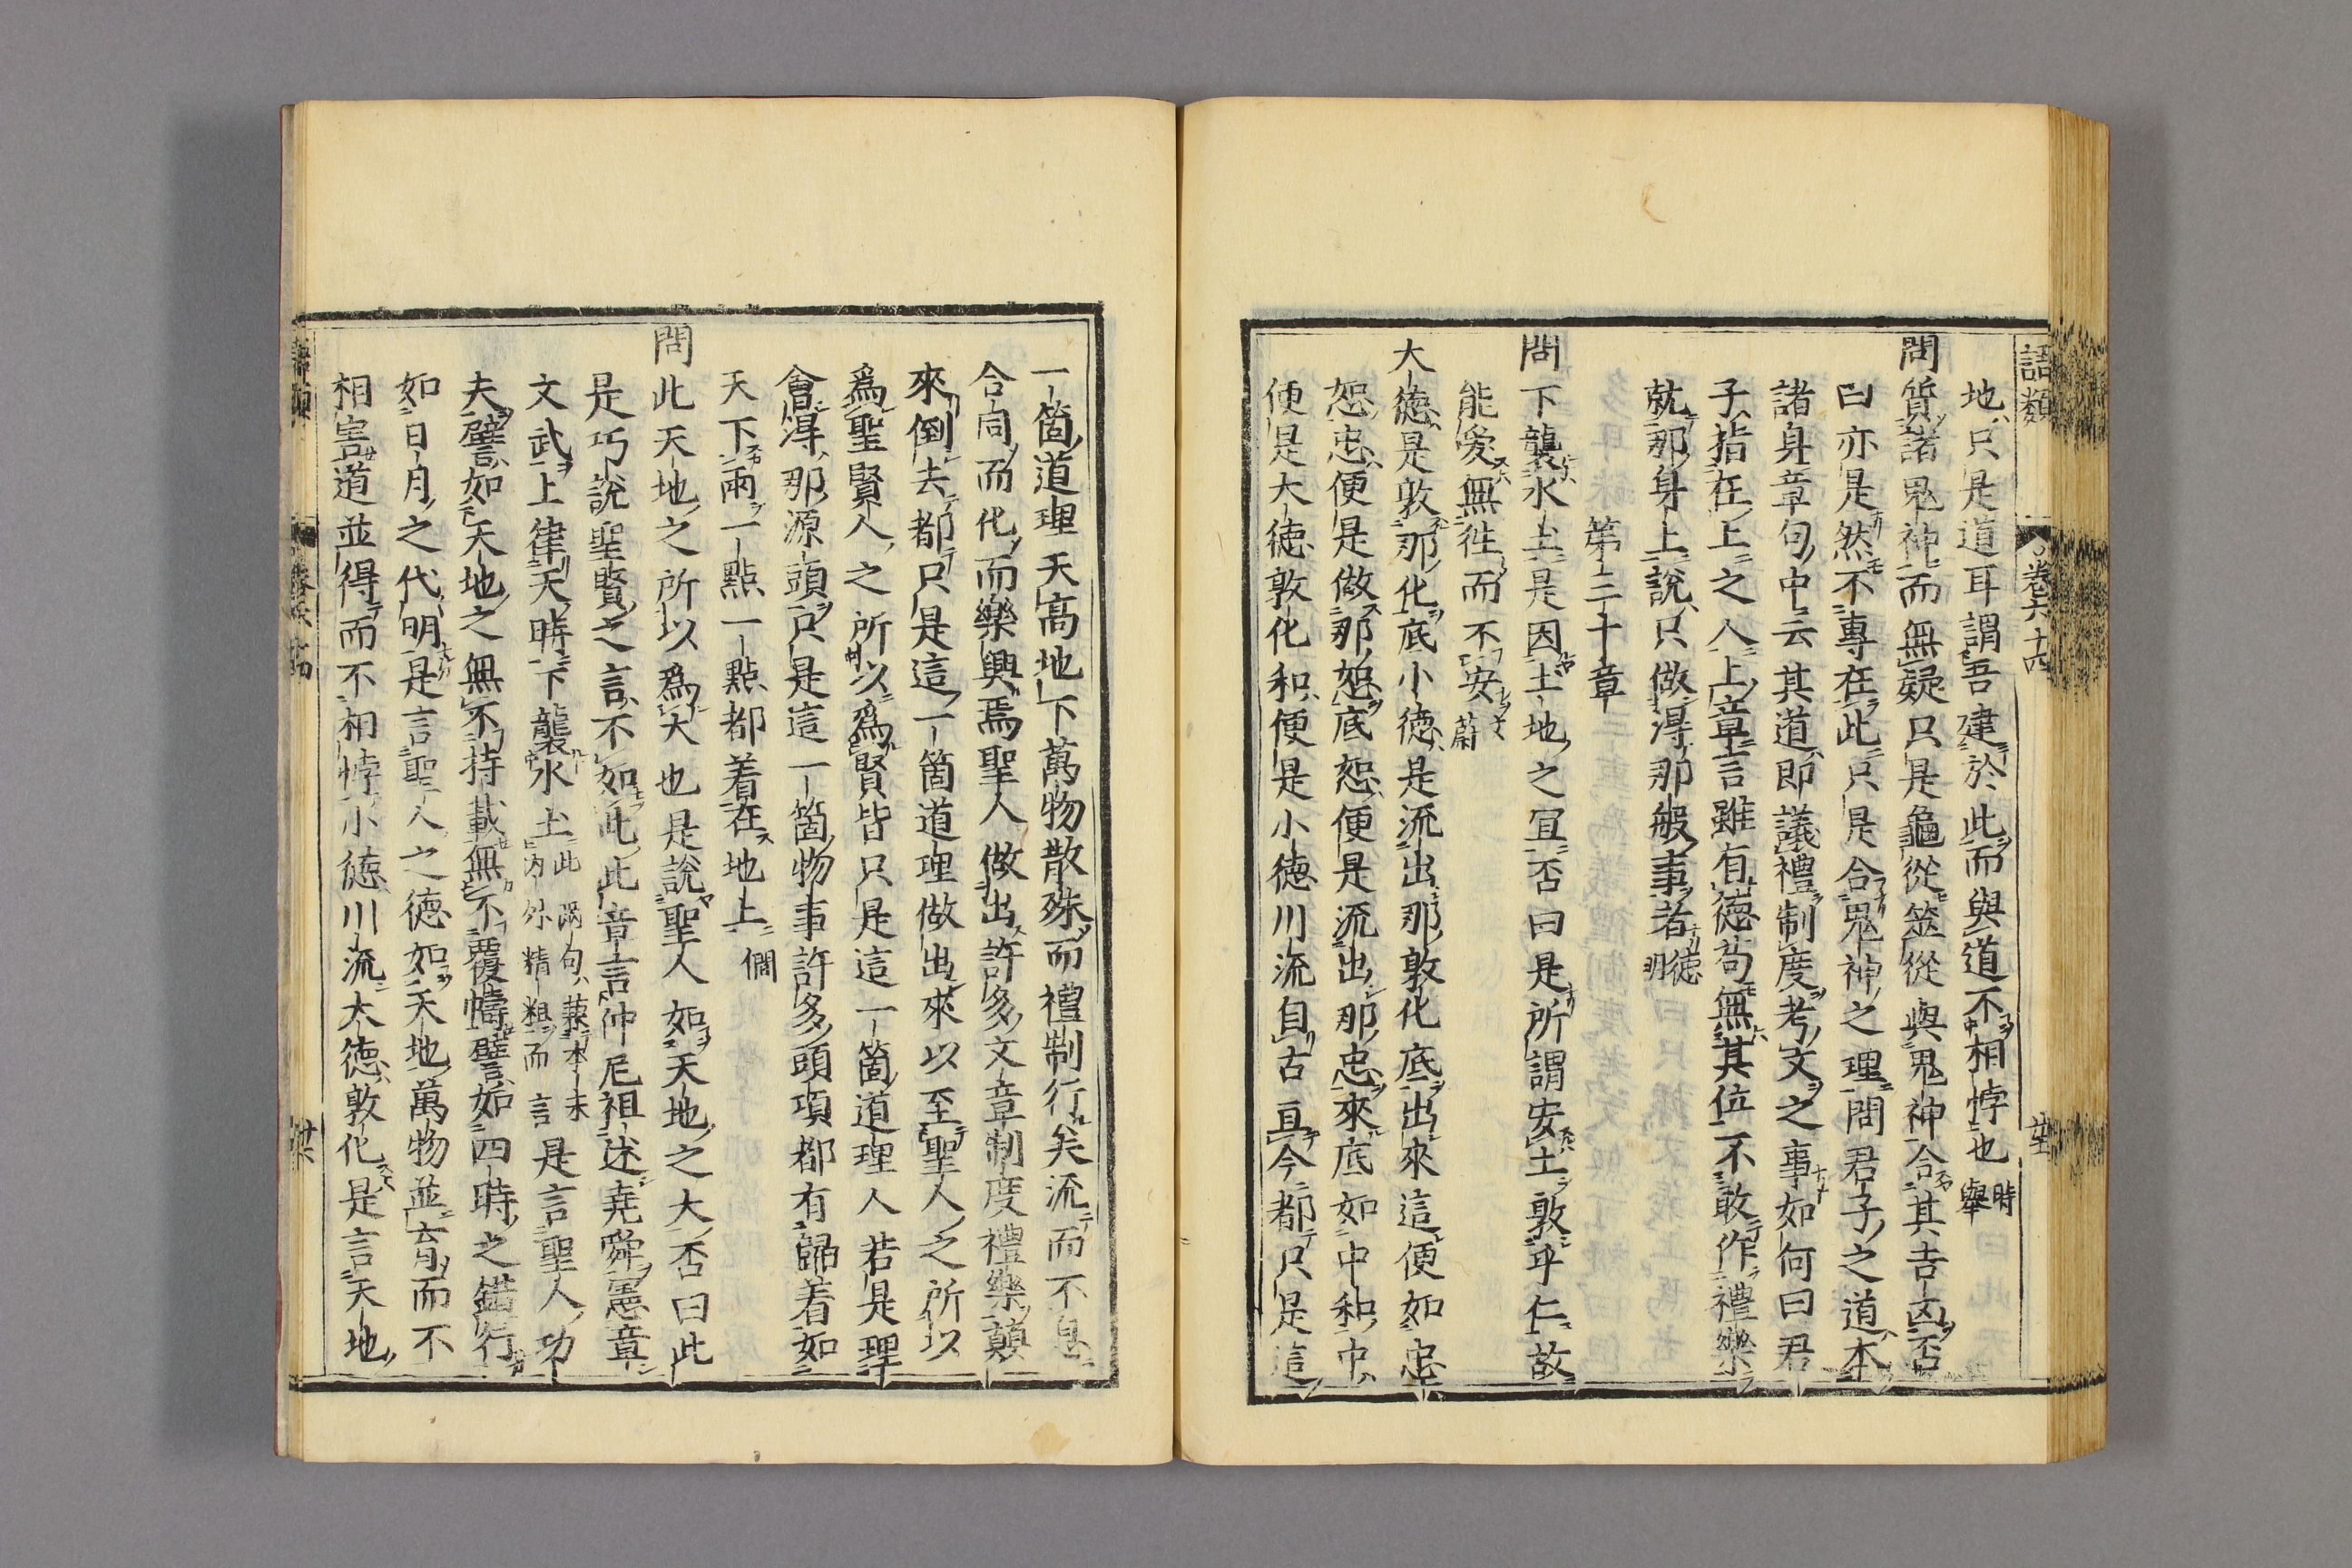 語類 卷六十四
地只是道耳謂吾建於此而與道不相悖也時舉
問質諸鬼神而無疑只是龜從筮從與鬼神合其吉凶否
曰亦是然不專在此只是合鬼神之理問君子之道本
諸身章句中云其道即議禮制度考文之事如何曰君
子指在上之人上章言雖有德苟無其位不敢作禮樂
就那身上說只做得那般事者德明
第三十章
問下襲水土是因土地之宜否曰是所謂安土敦乎仁故
能愛無徃而不安蔚
大德是敦那化底小德是流出那敦化底出來這便如忠
恕忠便是做那恕底恕便是流出那忠來底如中和中
便是大德敦化和便是小德川流自古亘今都只是這
一箇道理天高地下萬物散殊而禮制行矣流而不息
合同而化而樂興焉聖人做出許多文章制度禮樂顛
來倒去都只是這一箇道理做出來以至聖人之所以
爲聖賢人之所以爲賢皆只是這一箇道理人若是理
會得那源頭只是這一箇物事許多頭項都有歸着如
天下雨一點一點都着在地上僩
問此天地之所以爲大也是說聖人如天地之大否曰此
是巧說聖賢之言不如此此章言仲尼祖述堯舜憲章
文武上律天時下襲水土此兩句兼本末內外精粗而言是言聖人功
夫譬如天地之無不持載無不覆幬譬如四時之錯行
如日月之代明是言聖人之德如天地萬物並育而不
相害道並得而不相悖小德川流大德敦化是言天地